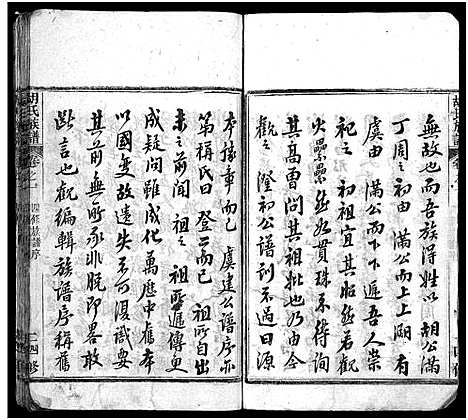 無故也而吾族得姓以胡公滿
丁周之初由滿公而上上溯有
虞由滿公而下下遞吾人崇
祀之初祖宜其如
火纍纍然如貫珠示得詢
其高曾問其祖妣也乃由今
觀之澄初公譜則不過曰源
本豫章而已虞建公譜序亦
第稱氏曰登公而已祖所自出
未之前聞祖之祖所遞傳更
成疑問嘅成化萬歷中舊本
以國變故遺失不可復識歟
其前無所承非脱即畧敢
此言也觀編輯族譜序稱舊
胡氏族譜
卷之一
四修族譜序
四修